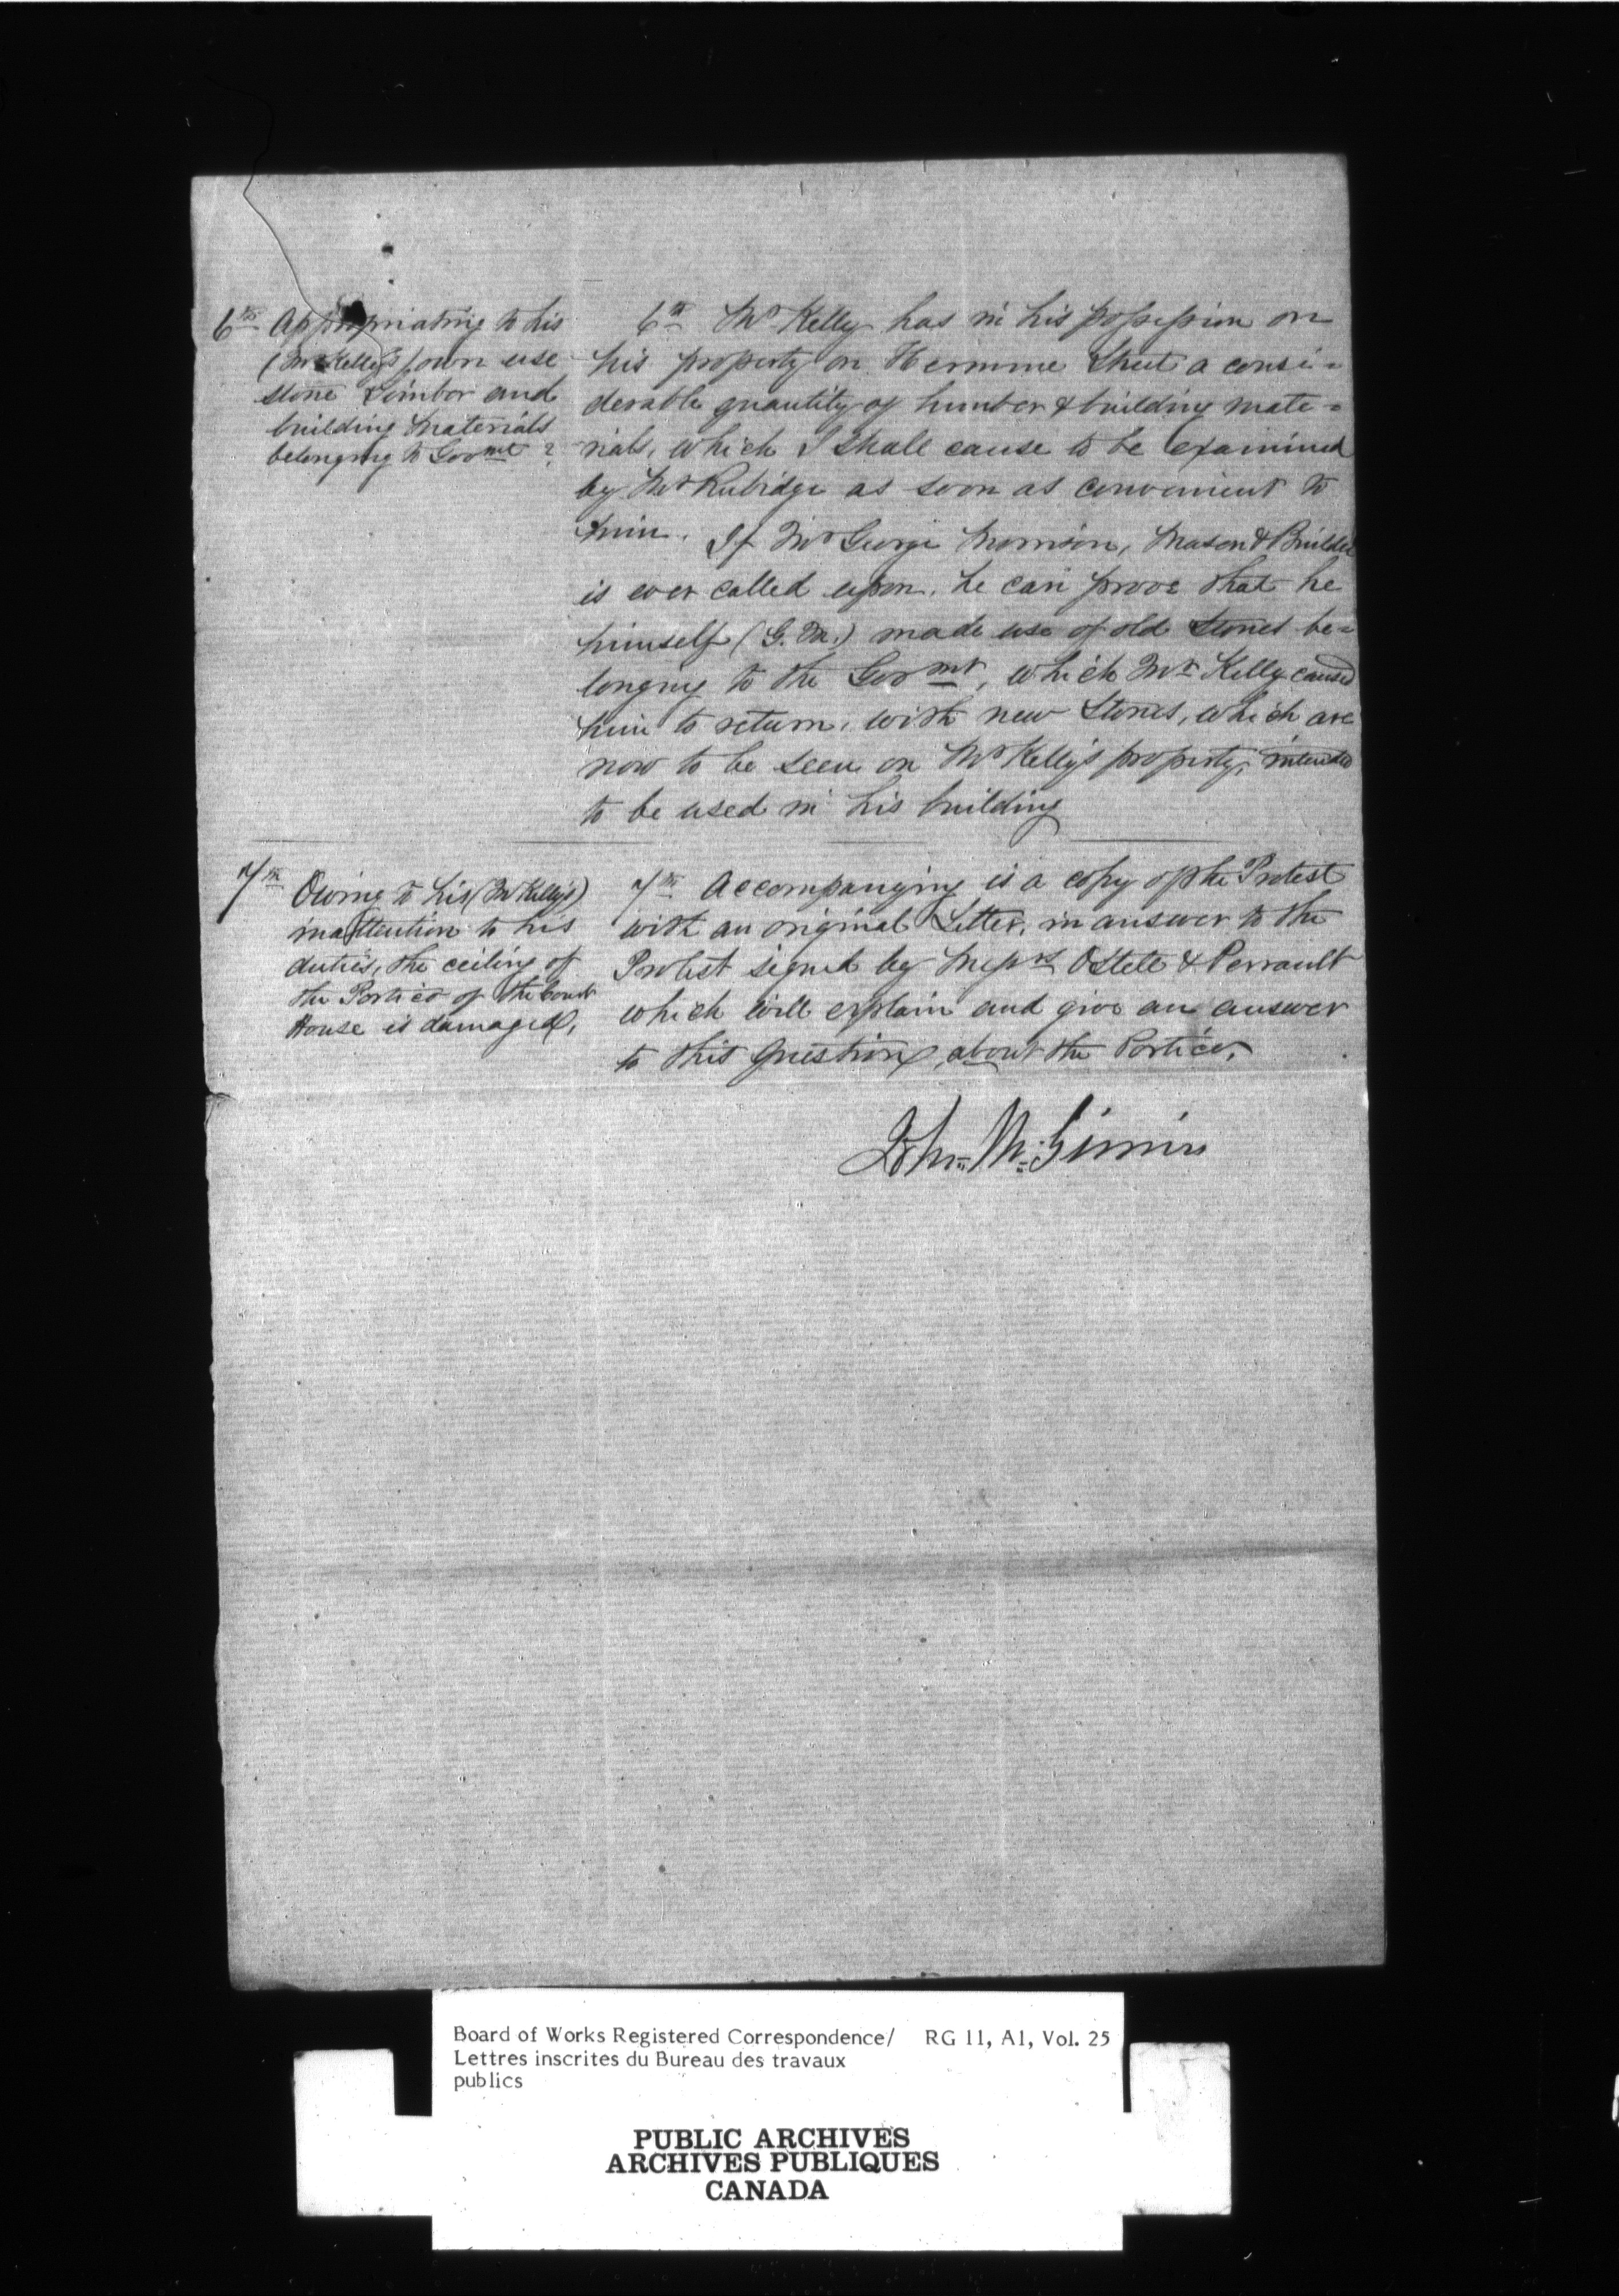 6th Appropriating to his
(Mr Kelly's) own use
stone timber and
building materials
belonging to Govmt ?
6th Mr Kelly has in his possession on
his property on Hermine Street a consi=
derable quantity of lumber & building mate=
rials, which I shall cause to be examined
by Mr Rubidge as soon as convenient to
him. If Mr George Morrison, Mason & Builder
is ever called upon, he can prove that he
himself (G. M.) made use of old stones be=
longing to the Govmt, which Mr Kelly caused
him to return, with new stones, which are
now to be seen on Mr Kelly's property, intended
to be used in his building
7th Owing to his (Mr Kelly's)
inattention to his
duties, the ceiling of
the Portico of the Court
House is damaged,
7th Accompanying is a copy of the Protest
with an original Letter, in answer to the
Protest signed by Messrs Ostell & Perrault
which will explain and give an answer
to this question, about the Portico.
John McGinnis
Board of Works Registered Correspondence/ RG 11, A1, Vol. 25
Lettres inscrites du Bureau des travaux
publics
PUBLIC ARCHIVES
ARCHIVES PUBLIQUES
CANADA